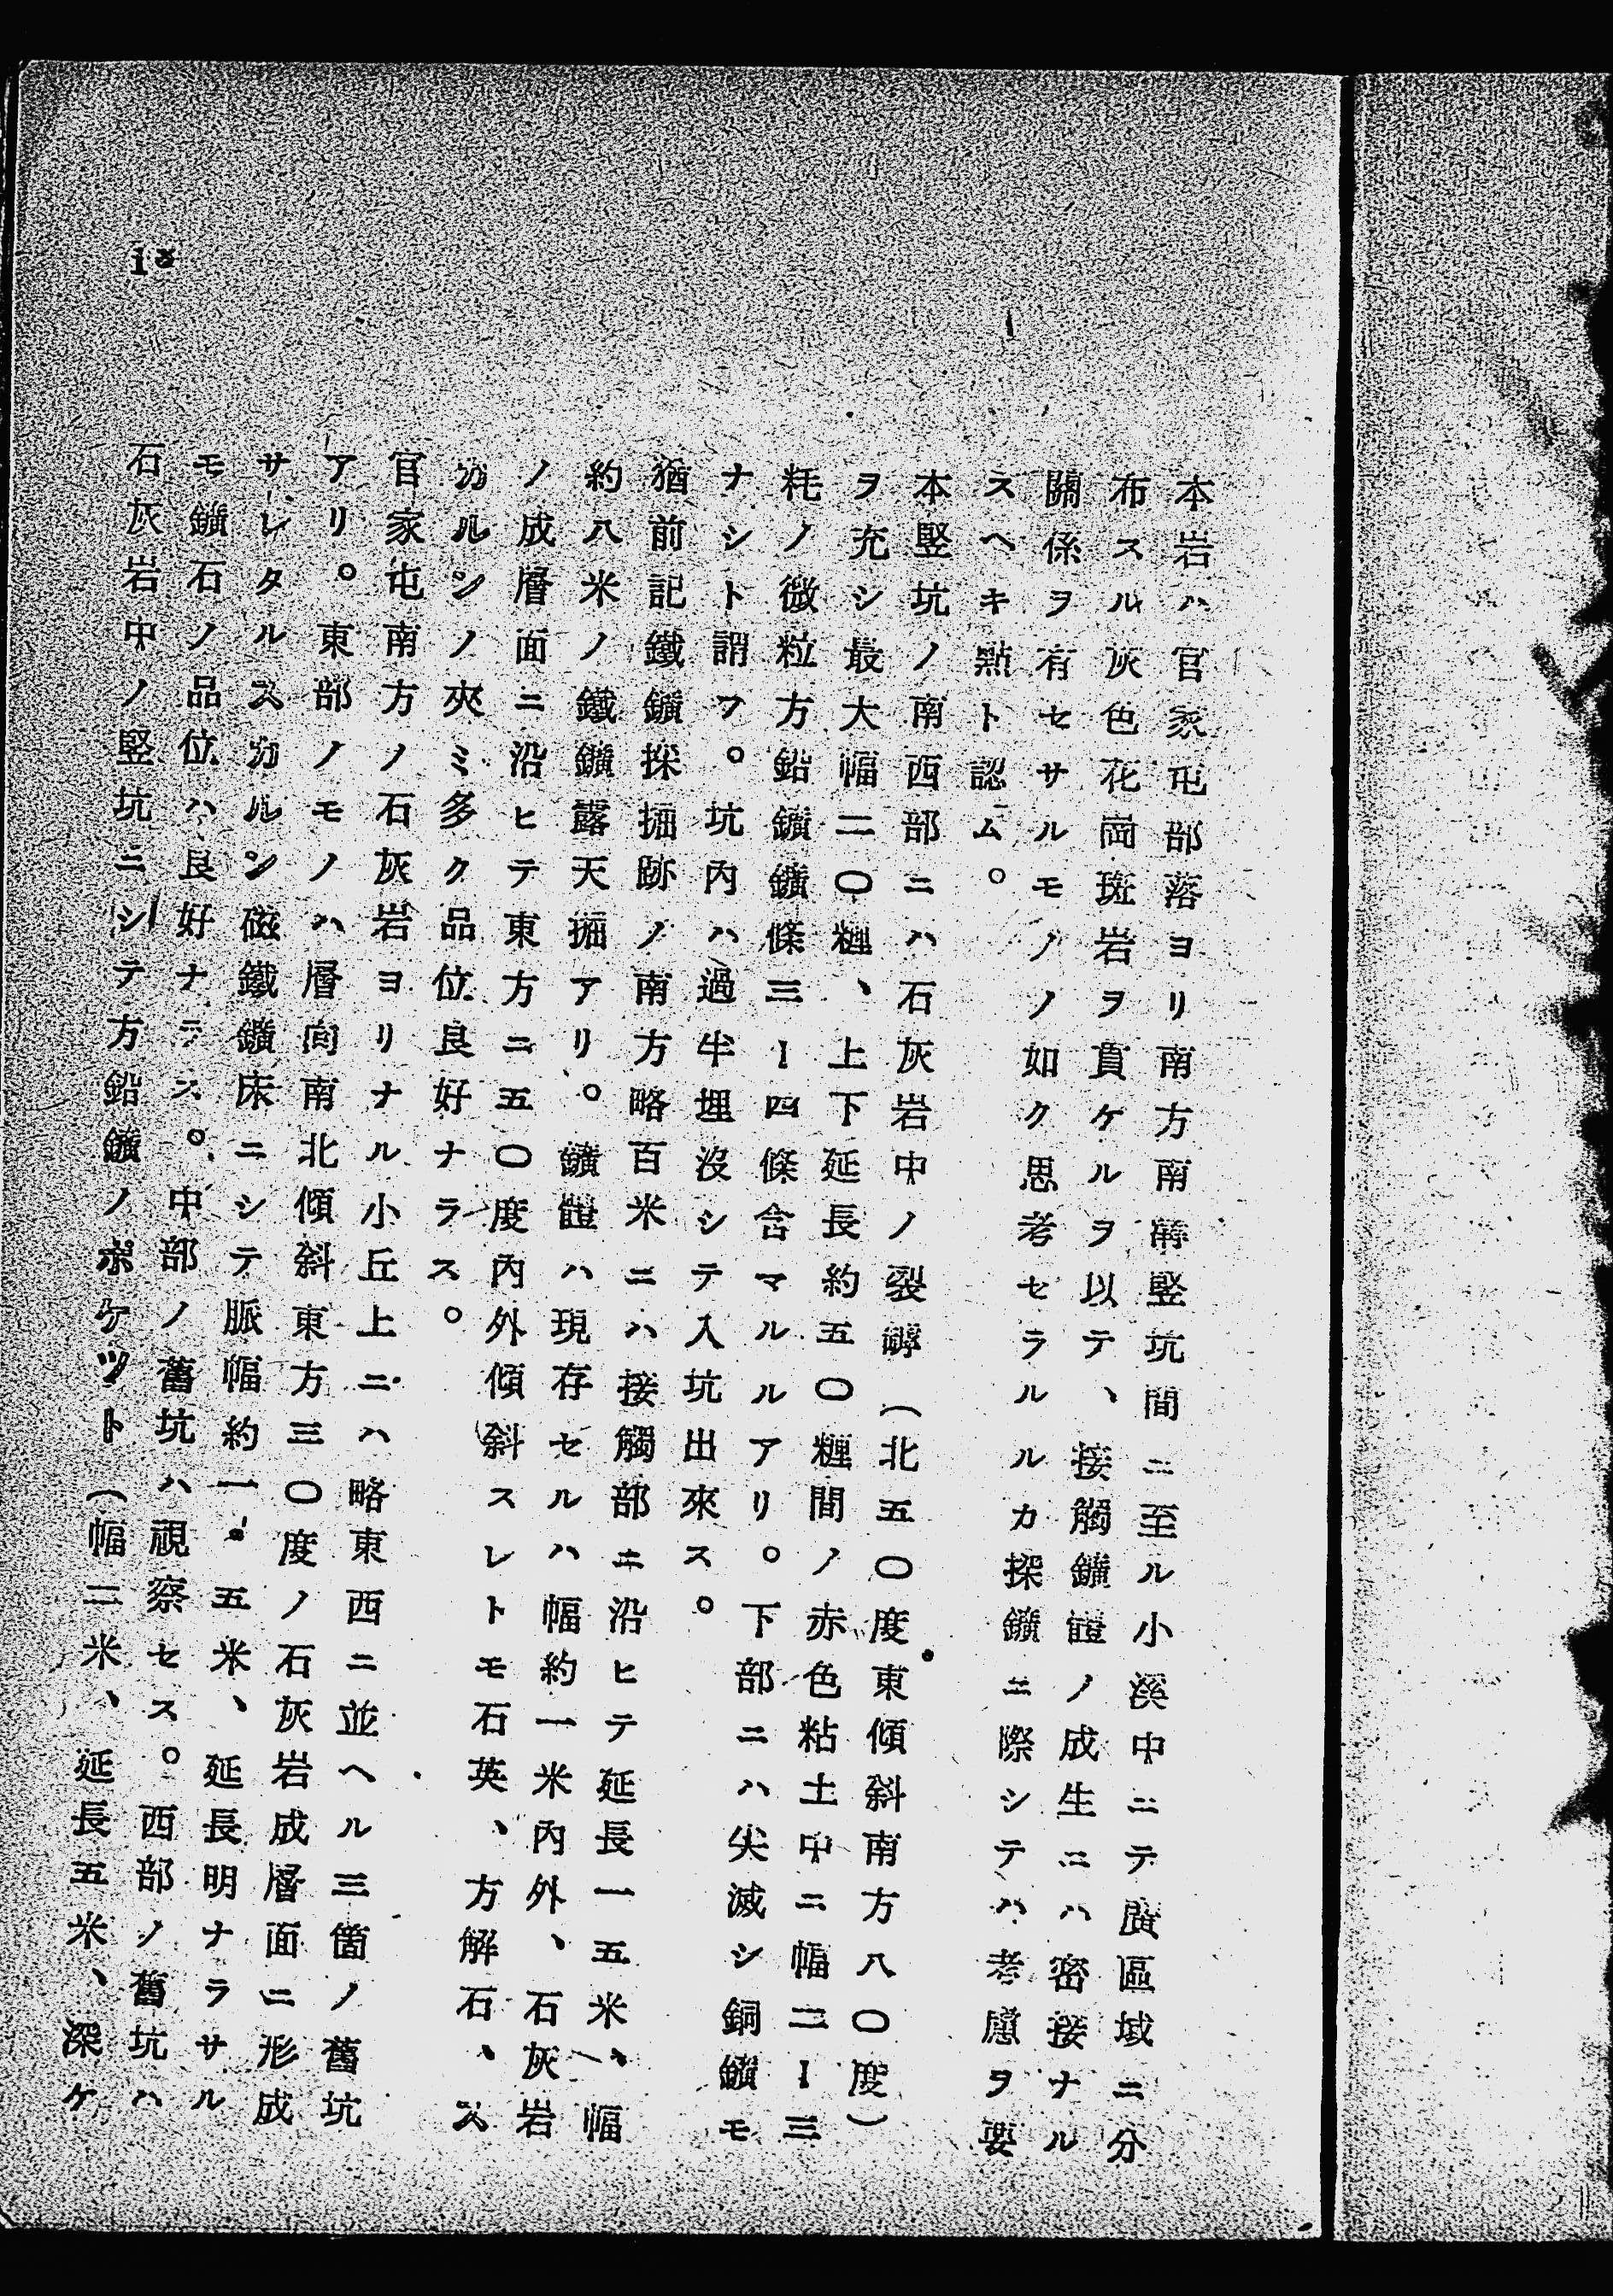 本岩ハ官家屯部落ヨリ南方南端竪坑間ニ至ル小溪中ニテ廣區域ニ分
布スル灰色花崗斑岩ヲ貫ケルヲ以テ、接觸鑛體ノ成生ニハ密接ナル
關係ヲ有セサルモノノ如ク思考セラルルカ探鑛ニ際シテハ考慮ヲ要
スヘキ點ト認ム。
本竪坑ノ南西部ニハ石灰岩中ノ裂罅(北五〇度東傾斜南方八〇度)
ヲ充シ最大幅二〇糎、上下延長約五〇糎間ノ赤色粘土中ニ幅二ー三
粍ノ微粒方鉛鑛鑛條三ー四條含マルルアリ。下部ニハ尖滅シ銅鑛モ
ナシト謂フ。坑內ハ過半埋沒シテ入坑出來ス。
猶前記鐵鑛採掘跡ノ南方略百米ニハ接觸部ニ沿ヒテ延長一五米、幅
約八米ノ鐵鑛露天掘アリ。鑛體ハ現存セルハ幅約一米內外、石灰岩
ノ成層面ニ沿ヒテ東方ニ五〇度內外傾斜スレトモ石英、方解石、ス
カルンノ夾ミ多ク品位良好ナラス。
官家屯南方ノ石灰岩ヨリナル小丘上ニハ略東西ニ並ヘル三箇ノ舊坑
アリ。東部ノモノハ層向南北傾斜東方三〇度ノ石灰岩成層面ニ形成
サレタルスカルン磁鐵鑛床ニシテ脈幅約一・五米、延長明ナラサル
モ鑛石ノ品位ハ良好ナラス。中部ノ舊坑ハ視察セス。西部ノ舊坑ハ
石灰岩中ノ竪坑ニシテ方鉛鑛ノポケツト(幅二米、延長五米、深ケ